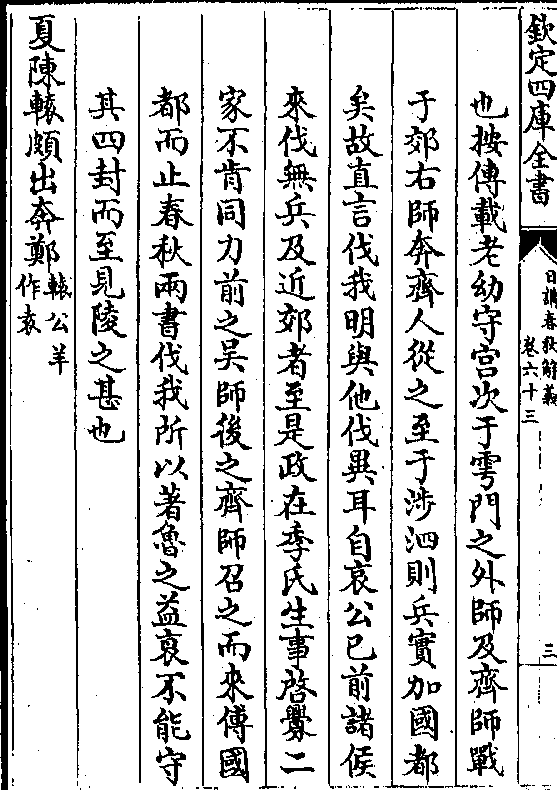 欽定四庫全書
日講春秋解義
卷六十三
三
也按傳載老幼守宮次于雩門之外師及齊師戰
于郊右師奔齊人從之至于涉泗則兵實加國都
矣故直言伐我明與他伐異耳自哀公已前諸侯
來伐無兵及近郊者至是政在季氏生事啓釁二
家不肯同力前之吳師後之齊師召之而來傅國
都而止春秋兩書伐我所以著魯之益衰不能守
其四封而至見陵之甚也
夏陳轅頗出奔鄭
轅公羊
作袁